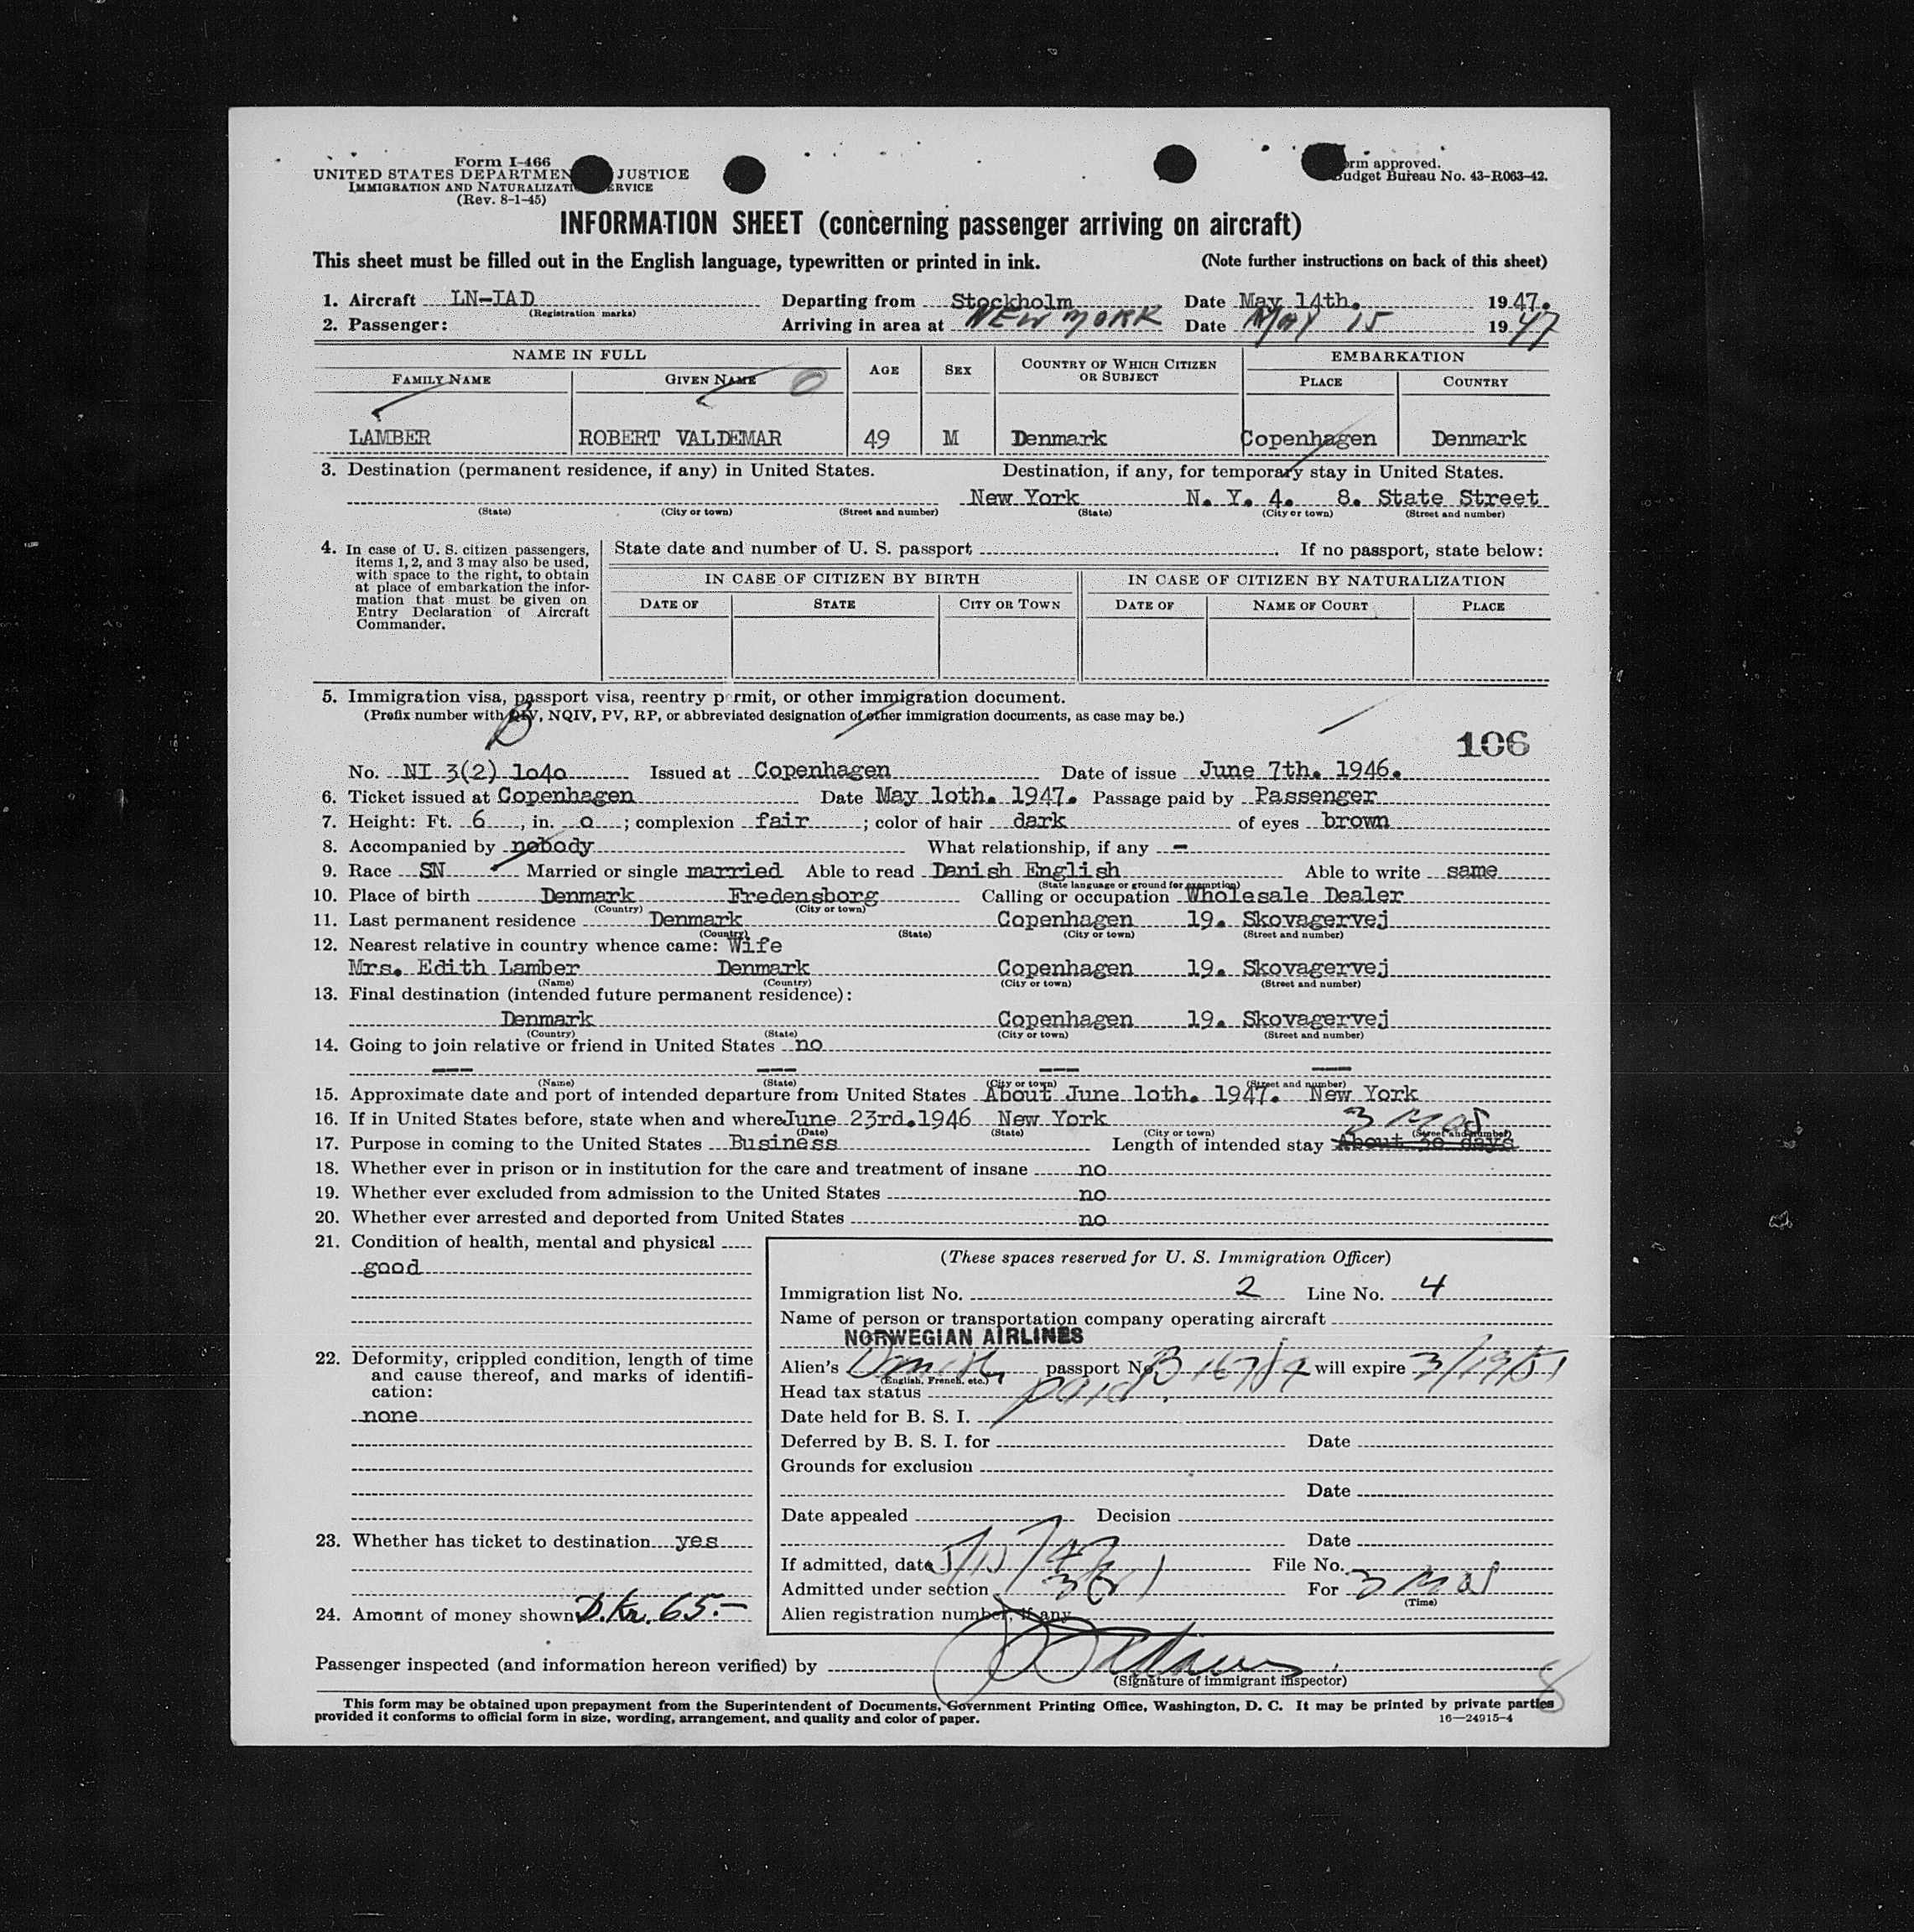 Form I-466
UNITED STATES DEPARTMEN JUSTICE
IMMIGRATION AND NATURALIZATI ERVICE
(Rev. 8-1-45)
orm approved.
udget Bureau No. 43-R063-42.
INFORMATION SHEET (concerning passenger arriving on aircraft)
This sheet must be filled out in the English language, typewritten or printed in ink. (Note further instructions on back of this sheet)
1. Aircraft LN-IAD Departing from Stockholm Date May 14th. 1947.
(Registration marks)
2. Passenger: Arriving in area at NEW YORK Date MAY 15 1947
NAME IN FULL AGE SEX COUNTRY OF WHICH CITIZEN OR SUBJECT EMBARKATION
FAMILY NAME GIVEN NAME PLACE COUNTRY
LAMBER ROBERT VALDEMAR 49 M Denmark Copenhagen Denmark
3. Destination (permanent residence, if any) in United States. Destination, if any, for temporary stay in United States.
New York N. Y. 4. 8. State Street
(State) (City or town) (Street and number) (State) (City or town) (Street and number)
4. In case of U. S. citizen passengers, items 1, 2, and 3 may also be used, with space to the right, to obtain at place of embarkation the information that must be given on Entry Declaration of Aircraft Commander.
State date and number of U. S. passport . If no passport, state below:
IN CASE OF CITIZEN BY BIRTH IN CASE OF CITIZEN BY NATURALIZATION
DATE OF STATE CITY OR TOWN DATE OF NAME OF COURT PLACE
5. Immigration visa, passport visa, reentry p rmit, or other immigration document.
(Prefix number with QIV, NQIV, PV, RP, or abbreviated designation of other immigration documents, as case may be.)
B
106
No. NI 3(2) 1o4o Issued at Copenhagen Date of issue June 7th. 1946.
6. Ticket issued at Copenhagen Date May 1oth. 1947. Passage paid by Passenger
7. Height: Ft. 6, in. o; complexion fair; color of hair dark of eyes brown
8. Accompanied by nobody What relationship, if any -
9. Race SN Married or single married Able to read Danish English Able to write same
(State language or ground for exemption)
10. Place of birth Denmark Fredensborg Calling or occupation Wholesale Dealer
(Country) (City or town)
11. Last permanent residence Denmark Copenhagen 19. Skovagervej
(Country) (State) (City or town) (Street and number)
12. Nearest relative in country whence came: Wife
Mrs. Edith Lamber Denmark Copenhagen 19. Skovagervej
(Name) (Country) (City or town) (Street and number)
13. Final destination (intended future permanent residence):
Denmark Copenhagen 19. Skovagervej
(Country) (State) (City or town) (Street and number)
14. Going to join relative or friend in United States no
--- --- --- ---
(Name) (State) (City or town) (Street and number)
15. Approximate date and port of intended departure from United States About June 1oth. 1947. New York
16. If in United States before, state when and where June 23rd. 1946 New York
(Date) (State) (City or town) (Street and number)
3 Mos
17. Purpose in coming to the United States Business Length of intended stay About 30 days
18. Whether ever in prison or in institution for the care and treatment of insane no
19. Whether ever excluded from admission to the United States no
20. Whether ever arrested and deported from United States no
21. Condition of health, mental and physical
good
22. Deformity, crippled condition, length of time and cause thereof, and marks of identification:
none
23. Whether has ticket to destination yes
24. Amount of money shown D.Kr. 65.-
(These spaces reserved for U. S. Immigration Officer)
Immigration list No. 2 Line No. 4
Name of person or transportation company operating aircraft
NORWEGIAN AIRLINES
Alien's Danish passport No. will expire 3/19/51
(English, French, etc.)
Head tax status paid.
Date held for B. S. I.
Deferred by B. S. I. for Date
Grounds for exclusion
Date
Date appealed Decision
Date
If admitted, date 5/15/47 File No.
Admitted under section 3(2) For 3 Mos
(Time)
Alien registration number, if any
Passenger inspected (and information hereon verified) by
(Signature of immigrant inspector)
8
This form may be obtained upon prepayment from the Superintendent of Documents, Government Printing Office, Washington, D. C. It may be printed by private parties
provided it conforms to official form in size, wording, arrangement, and quality and color of paper. 16—24915-4